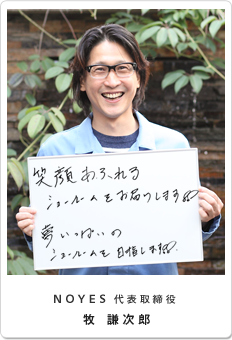 笑顔あふれる
ショールームをお届けします
夢いっぱいの
ショールームを目指します
NOYES 代表取締役
牧 謙次郎